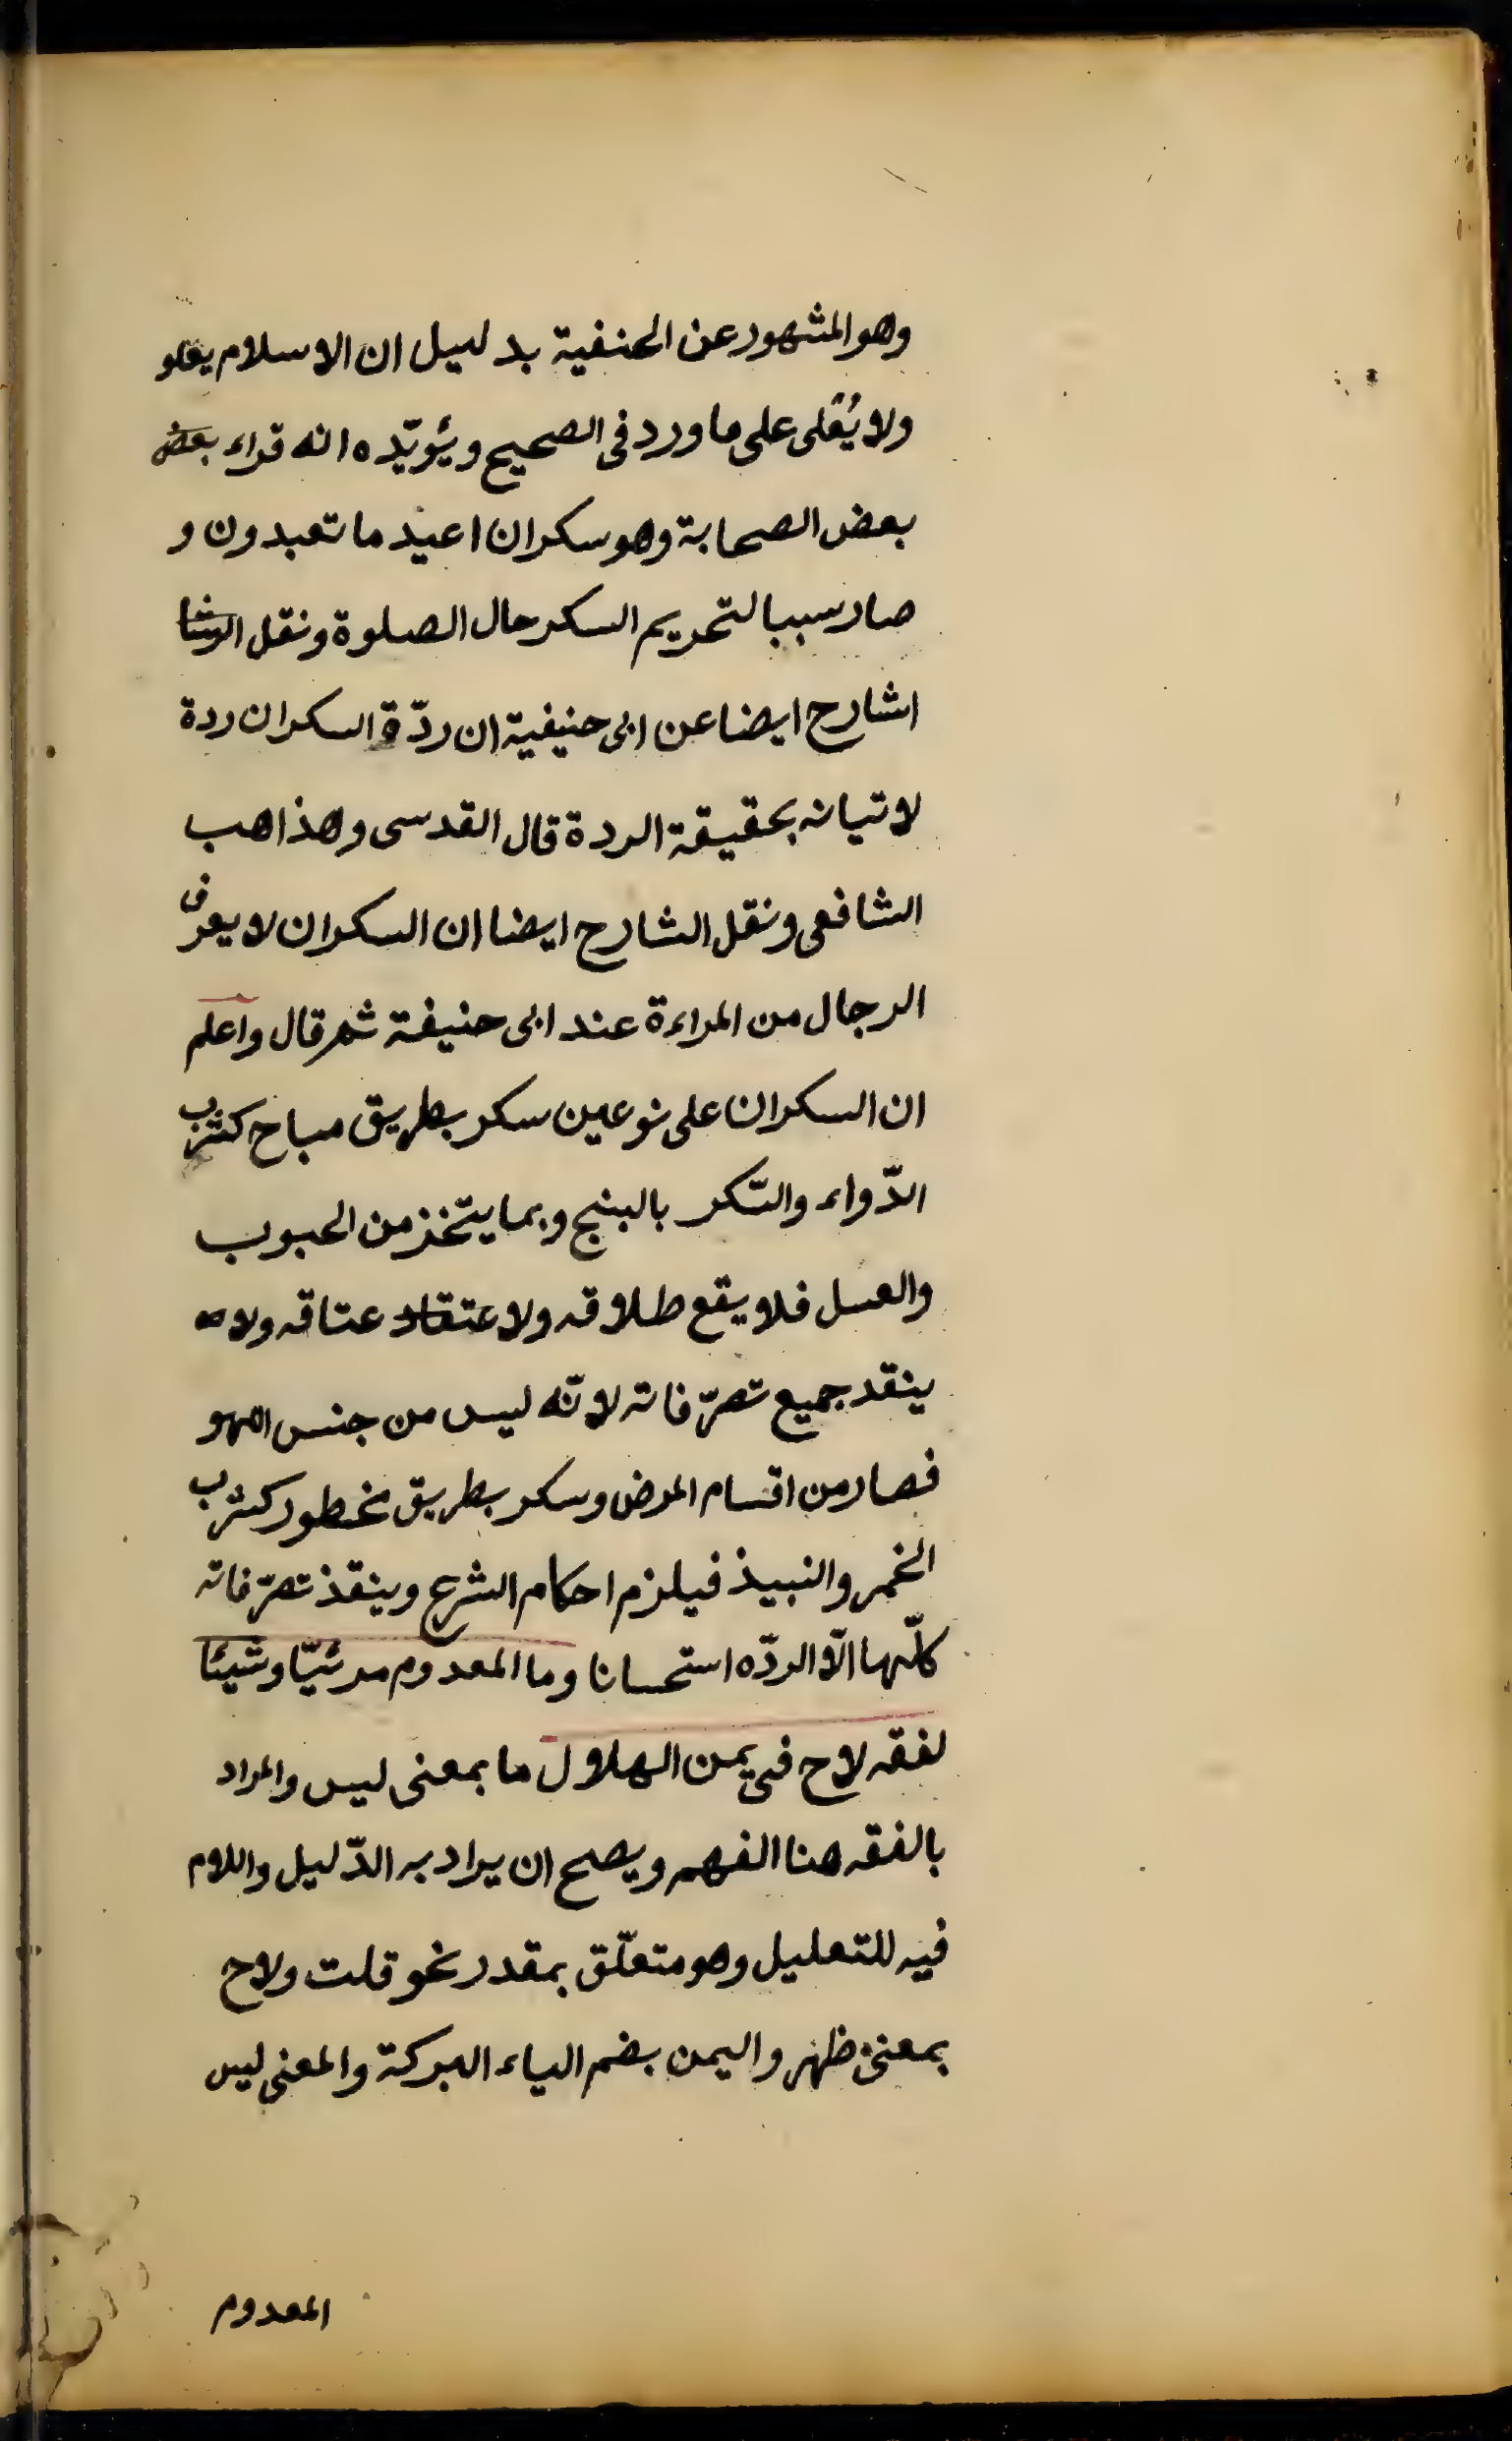 وهو المشهور عن الحنفية بدليل ان الاسلام يعلو
ولا يُعْلى على ما ورد فى الصحيح ويئويّده انه قراء بعض
بعض الصحابة وهو سكران اعيد ما تعبدون و
صار سببا لتحريم السكر حال الصلوة ونقل الشا
اشارح ايضا عن ابى حنيفية ان ردّة السكران ردة
لاتيانه بحقيقة الردة قال القدسى وهذاهب
الشافعى ونقل الشارح ايضا ان السكران لا يعرف
الرجال من المراءة عند ابى حنيفة ثم قال واعلم
ان السكران على نوعين سكر بطريق مباح كشرب
الدّواء والسّكر بالبنج وبما يتخذ من الحبوب
والعسل فلا يقع طلاقه ولا عتقاد عتاقه ولا
ينقد جميع تصرّفاته لانّه ليس من جنس اللهو
فصار من اقسام المرض وسكر بطريق مخطور كشرب
الخمر والنبيذ فيلزم احكام الشرع وينقذ تصرّفاته
كلّها الّا الردّه استحسانا وما المعدوم مرئيّا وشيئا
لفقه لاح فى يمن الهلال ما بمعنى ليس والمراد
بالفقه هنا الفهم ويصح ان يراد به الدّليل واللام
فيه للتعليل وهو متعلّق بمقدر نحو قلت ولاح
بمعنى ظهر واليمن بضم الياء البركة والمعنى ليس
المعدوم